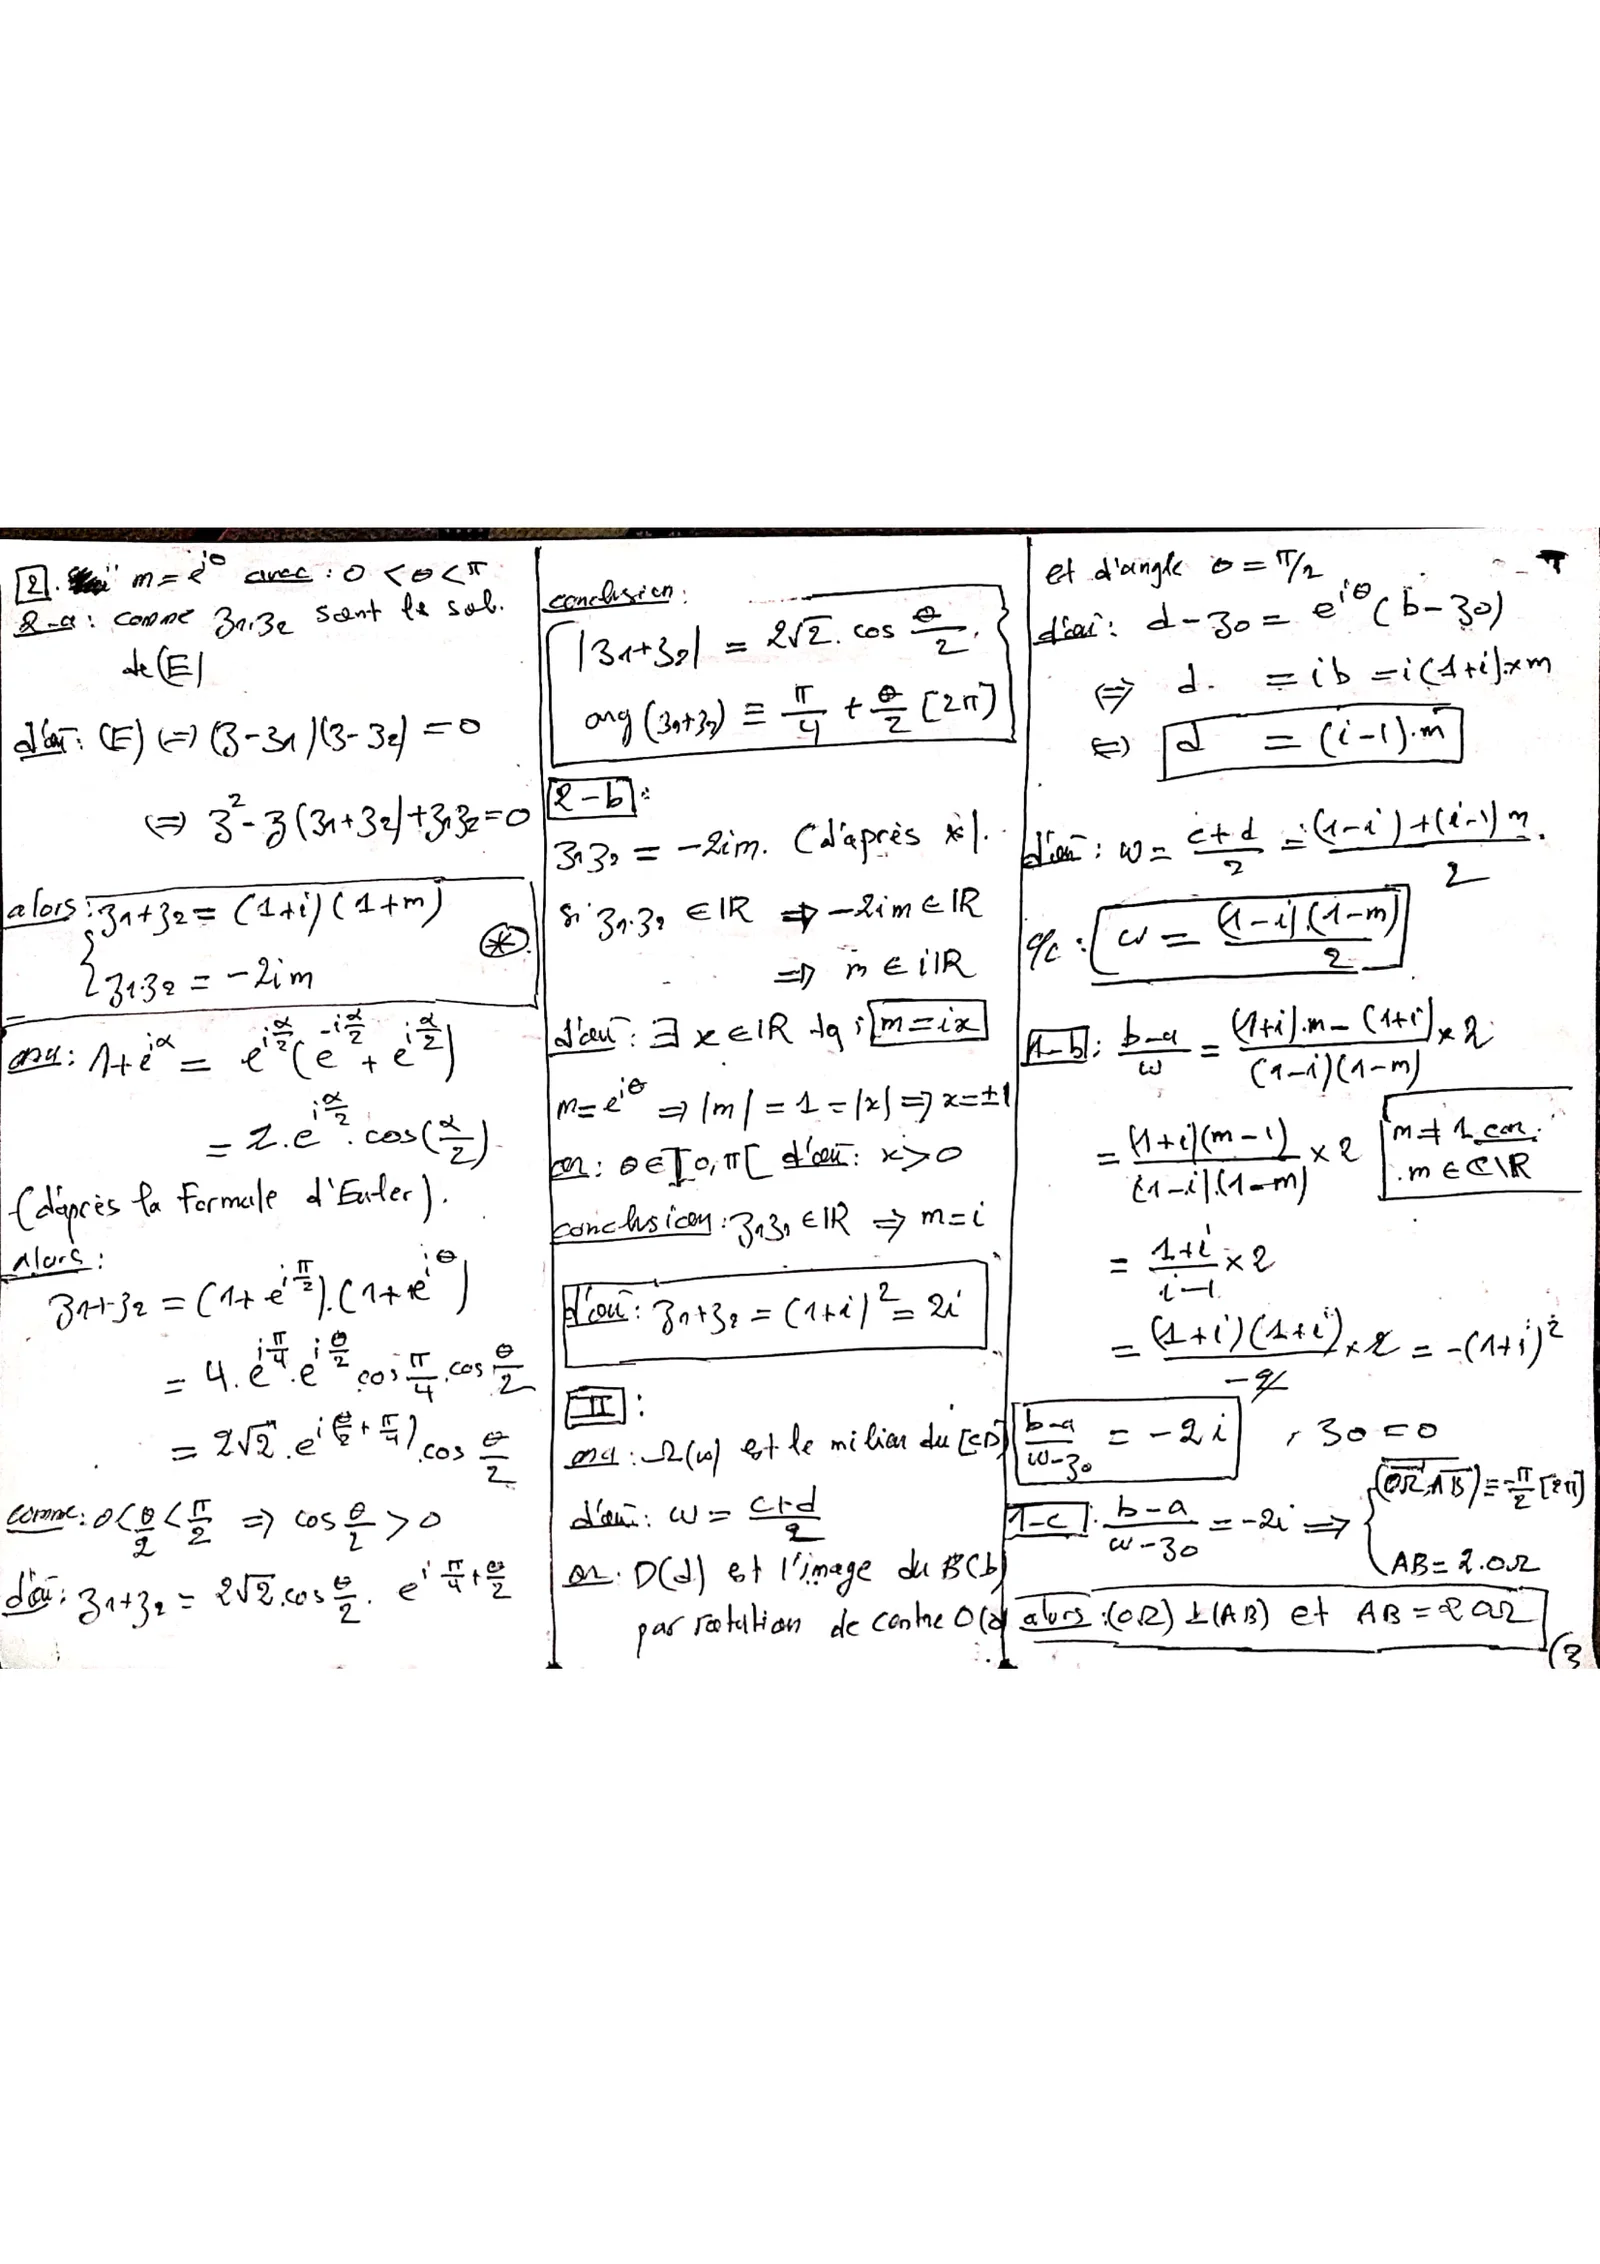 2. m = e^{iθ} avec : 0 < θ < π
2-a : comme z₁, z₂ sont le sol.
de (E)
d'où : (E) ⇔ (z - z₁)(z - z₂) = 0
⇔ z² - z(z₁+z₂) + z₁z₂ = 0
alors : { z₁+z₂ = (1+i)(1+m)
z₁.z₂ = -2im (*)
ona : 1+e^{iα} = e^{iα/2}(e^{-iα/2} + e^{iα/2})
= 2.e^{iα/2}.cos(α/2).
(d'après la Formule d'Euler).
Alors :
z₁+z₂ = (1+e^{iπ/2}).(1+e^{iθ})
= 4.e^{iπ/4}.e^{iθ/2} cos π/4.cos θ/2
= 2√2.e^{i(θ/2+π/4)}.cos θ/2
comme : 0 < θ/2 < π/2 ⇒ cos θ/2 > 0
d'où : z₁+z₂ = 2√2.cos θ/2. e^{i π/4+θ/2}
conclusion :
|z₁+z₂| = 2√2. cos θ/2.
arg(z₁+z₂) ≡ π/4 + θ/2 [2π]
2-b :
z₁z₂ = -2im. (d'après *).
si z₁.z₂ ∈ IR ⇒ -2im ∈ IR
⇒ m ∈ iIR
d'où : ∃ x ∈ IR tq : m = ix
m = e^{iθ} ⇒ |m| = 1 = |x| ⇒ x = ±1
or : θ ∈ ]0,π[ d'où : x > 0
conclusion : z₁z₂ ∈ IR ⇒ m = i
d'où : z₁+z₂ = (1+i)² = 2i
II :
ona : Ω(ω) est le milieu du [CD]
d'où : ω = (c+d)/2
or. D(d) est l'image du B(b)
par rotation de centre O(
et d'angle θ = π/2
d'où : d - z₀ = e^{iθ}(b - z₀)
⇔ d. = ib = i(1+i)×m
⇔ d = (i-1).m
d'où : ω = (c+d)/2 = ((1-i)+(i-1)m)/2.
q/c : ω = ((1-i).(1-m))/2
1-b : (b-a)/ω = ((1+i).m-(1+i))/((1-i)(1-m)) × 2
= ((1+i)(m-1))/((1-i).(1-m)) × 2 m ≠ 1 car.
m ∈ C\IR
= (1+i)/(i-1) × 2
= ((1+i)(1+i))/(-2) × 2 = -(1+i)²
(b-a)/(ω-z₀) = -2i , z₀ = 0
1-c : (b-a)/(ω-z₀) = -2i ⇒ { (OΩ, AB) ≡ -π/2 [2π]
AB = 2.OΩ
alors : (OΩ) ⊥ (AB) et AB = 2OΩ
(3